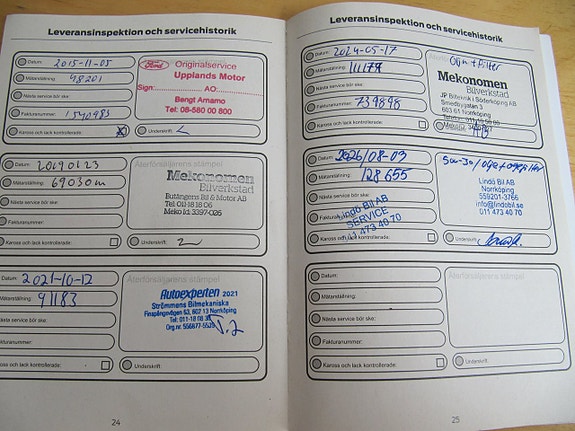 Leveransinspektion och servicehistorik
Datum: 2015-11-05
Mätarställning: 48201
Nästa service bör ske:
Fakturanummer: 1540983
Kaross och lack kontrollerade: X
Ford Originalservice
Upplands Motor
Sign: AO:
Bengt Arnamo
Tel: 08-580 00 800
Underskrift:
Datum: 20190123
Mätarställning: 69030m
Nästa service bör ske:
Fakturanummer:
Kaross och lack kontrollerade:
Återförsäljarens stämpel
Mekonomen
Bilverkstad
Butängens Bil & Motor AB
Tel: 011-18 18 06
Meko Id: 3397-026
Underskrift:
Datum: 2021-10-12
Mätarställning: 91183
Nästa service bör ske:
Fakturanummer:
Kaross och lack kontrollerade:
Återförsäljarens stämpel
Autoexperten 2021
Strömmens Bilmekaniska
Finspångsvägen 63, 602 13 Norrköping
Tel: 011-18 08
Org.nr. 556877-55
Underskrift:
24
Leveransinspektion och servicehistorik
Datum: 2024-05-17
Mätarställning: 111177
Nästa service bör ske:
Fakturanummer: 739898
Kaross och lack kontrollerade:
Olja + Filter
Mekonomen
Bilverkstad
JP Bilteknik i Söderköping AB
Smedbygatan 3
603 61 Norrköping
Telefon: 011-
Underskrift:
Datum: 2026/08-03
Mätarställning: 128655
Nästa service bör ske:
Kaross och lack kontrollerade:
Lindö Bil AB
SERVICE
011 473 40 70
Lindö Bil AB
Norrköping
559201-3766
info@lindobil.se
011 473 40 70
Underskrift:
Datum:
Mätarställning:
Nästa service bör ske:
Fakturanummer:
Kaross och lack kontrollerade:
Återförsäljarens stämpel
Underskrift:
25